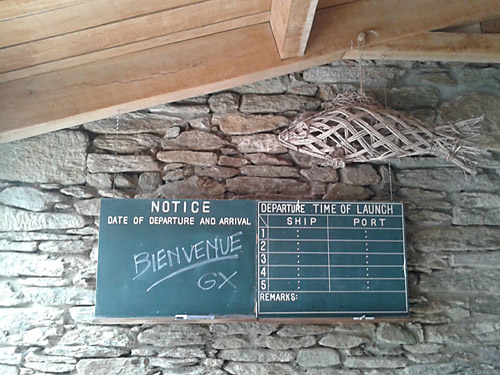 NOTICE
DATE OF DEPARTURE AND ARRIVAL
BIENVENUE
GX
DEPARTURE TIME OF LAUNCH
SHIP PORT
1
2
3
4
5
REMARKS: